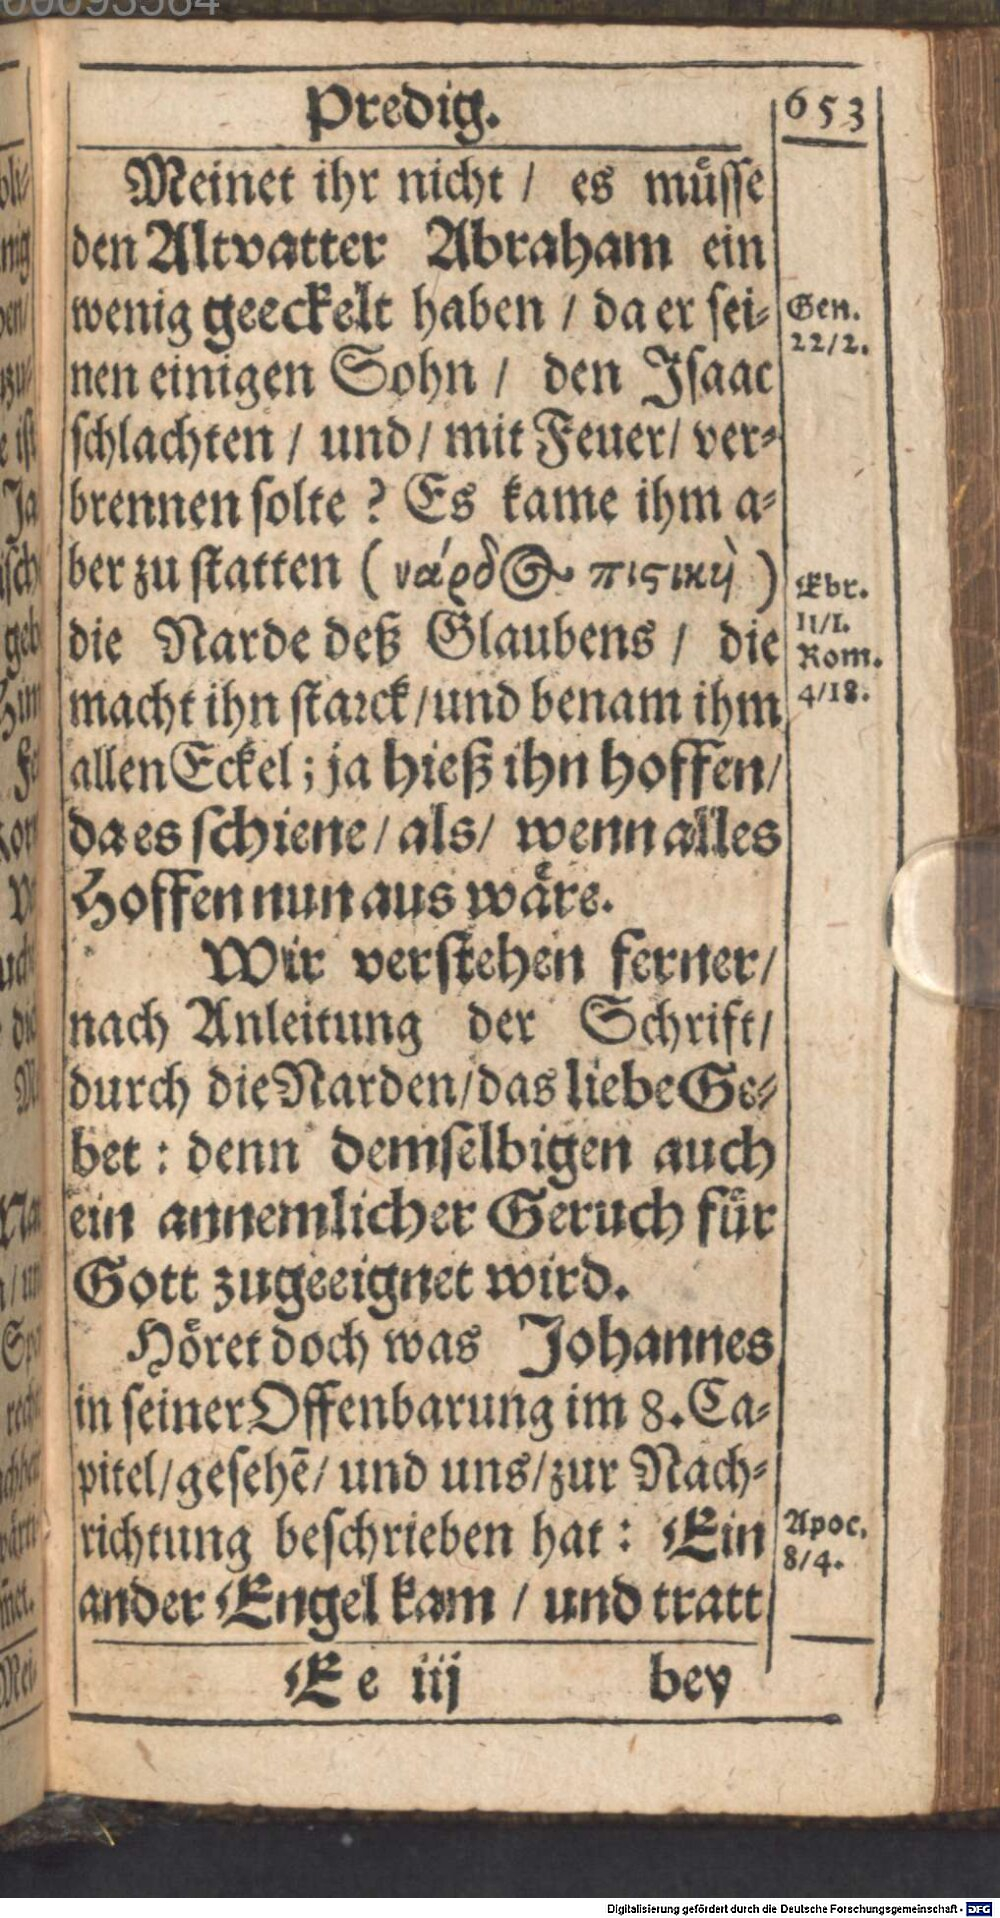 Predig.
653
Meinet ihr nicht / es müsse
den Altvatter Abraham ein
wenig geeckelt haben / da er sei-
nen einigen Sohn / den Isaac
schlachten / und / mit Feuer / ver-
brennen solte ? Es kame ihm a-
ber zu statten ( νάρδος πιςικὴ )
die Narde deß Glaubens / die
macht ihn starck / und benam ihm
allen Eckel ; ja hieß ihn hoffen /
da es schiene / als / wenn alles
Hoffen nun aus wäre.
Wir verstehen ferner /
nach Anleitung der Schrift /
durch die Narden / das liebe Ge-
bet : denn demselbigen auch
ein annemlicher Geruch für
Gott zugeeignet wird.
Höret doch was Johannes
in seiner Offenbarung im 8. Ca-
pitel / gesehẽ / und uns / zur Nach-
richtung beschrieben hat : Ein
ander Engel kam / und tratt
Ee iij
bey
Gen.
22/2.
Ebr.
11/1.
Rom.
4/18.
Apoc.
8/4.
Digitalisierung gefördert durch die Deutsche Forschungsgemeinschaft - DFG